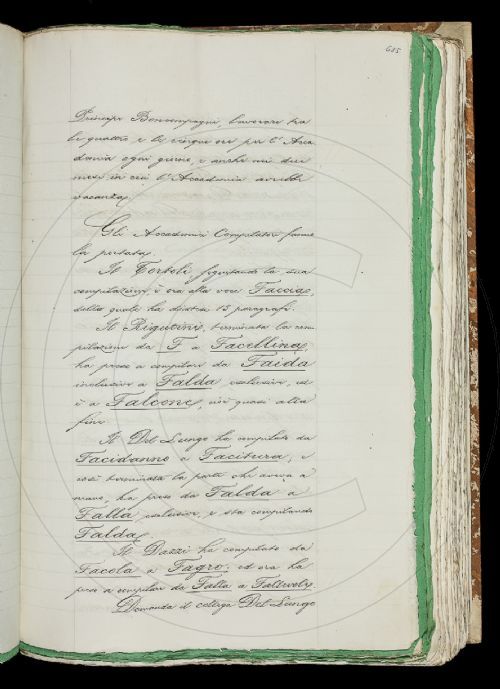 685
Principe Boncompagni, lavorare tra
le quattro e le cinque ore per l'Acca
demia ogni giorno, e anche nei due
mesi in cui l'Accademia avrebbe
vacanza.
Gli Accademici Compilatori fanno
la portata.
Il Tortoli seguitando la sua
compilazione, è ora alla voce Faccia,
della quale ha distesi 15 paragrafi.
Il Rigutini, terminata la com
pilazione da F a Facellina,
ha preso a compilare da Faida
inclusive a Falda exclusive, ed
è a Falcone, cioè quasi alla
fine.
Il Del Lungo ha compilato da
Facidanno a Facitura, e
così terminata la parte che aveva a
mano, ha preso da Falda a
Falla exclusive, e sta compilando
Falda.
Il Dazzi ha compilato da
Facola a Fagro; ed ora ha
preso a compilare da Falla a
Domanda il collega Del Lungo